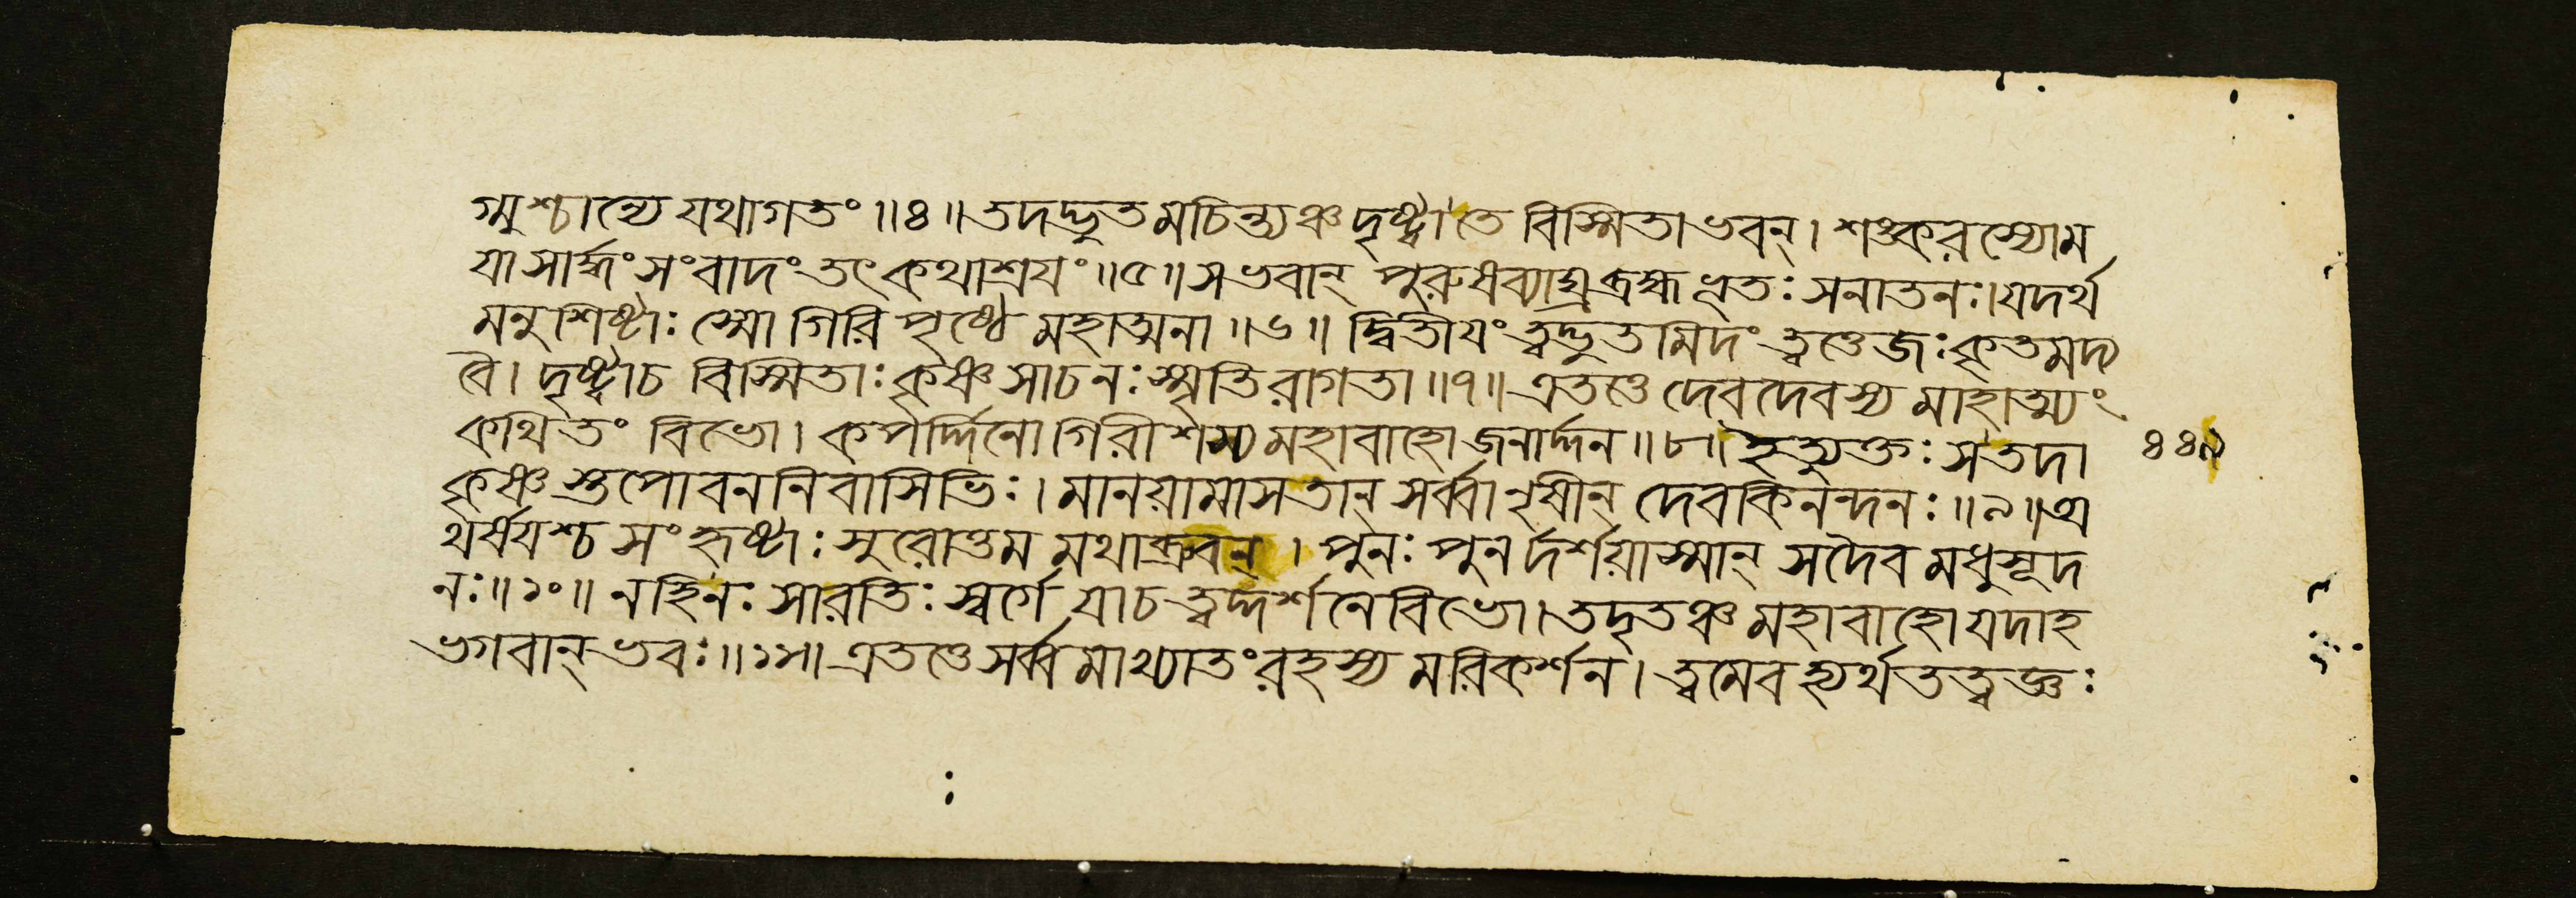 গ্মুশ্চান্যে যথাগতং ॥৪॥ তদদ্ভুতমচিন্ত্যঞ্চ দৃষ্ট্বা তে বিস্মিতা ভবন্। শঙ্করস্যোম
যা সার্দ্ধং সংবাদং তৎ কথাশ্রয়ং ॥৫॥ স ভবান্ পুরুষব্যাঘ্র ব্রহ্মভূতঃ সনাতনঃ। যদর্থ
মনুশিষ্টাঃ স্মো গিরিপৃষ্ঠে মহাত্মনা ॥৬॥ দ্বিতীয়ং ত্বদ্ভুতমিদং ত্বত্তেজঃ কৃতমদ্য
বৈ। দৃষ্ট্বা চ বিস্মিতাঃ কৃষ্ণ সা চ নঃ স্মৃতিরাগতা ॥৭॥ এতত্তে দেবদেবস্য মাহাত্ম্যং
কথিতং বিভো। কপর্দ্দিনো গিরীশস্য মহাবাহো জনার্দ্দন ॥৮॥ ইত্যুক্তঃ স তদা
কৃষ্ণস্তপোবননিবাসিভিঃ। মানয়ামাস তান্ সর্ব্বানৃষীন্ দেবকিনন্দনঃ ॥৯॥ অ
থর্ষয়শ্চ সংহৃষ্টাঃ সুরোত্তমমথাব্রুবন্। পুনঃ পুনর্দর্শয়াস্মান্ সদৈব মধুসূদ
নঃ ॥১০॥ নহি নঃ সা রতিঃ স্বর্গে যা চ ত্বদ্দর্শনে বিভো। তদৃতঞ্চ মহাবাহো যদাহ
ভগবান্ ভবঃ ॥১১॥ এতত্তে সর্ব্বমাখ্যাতং রহস্যমরিকর্শন। ত্বমেব হ্যর্থতত্ত্বজ্ঞঃ